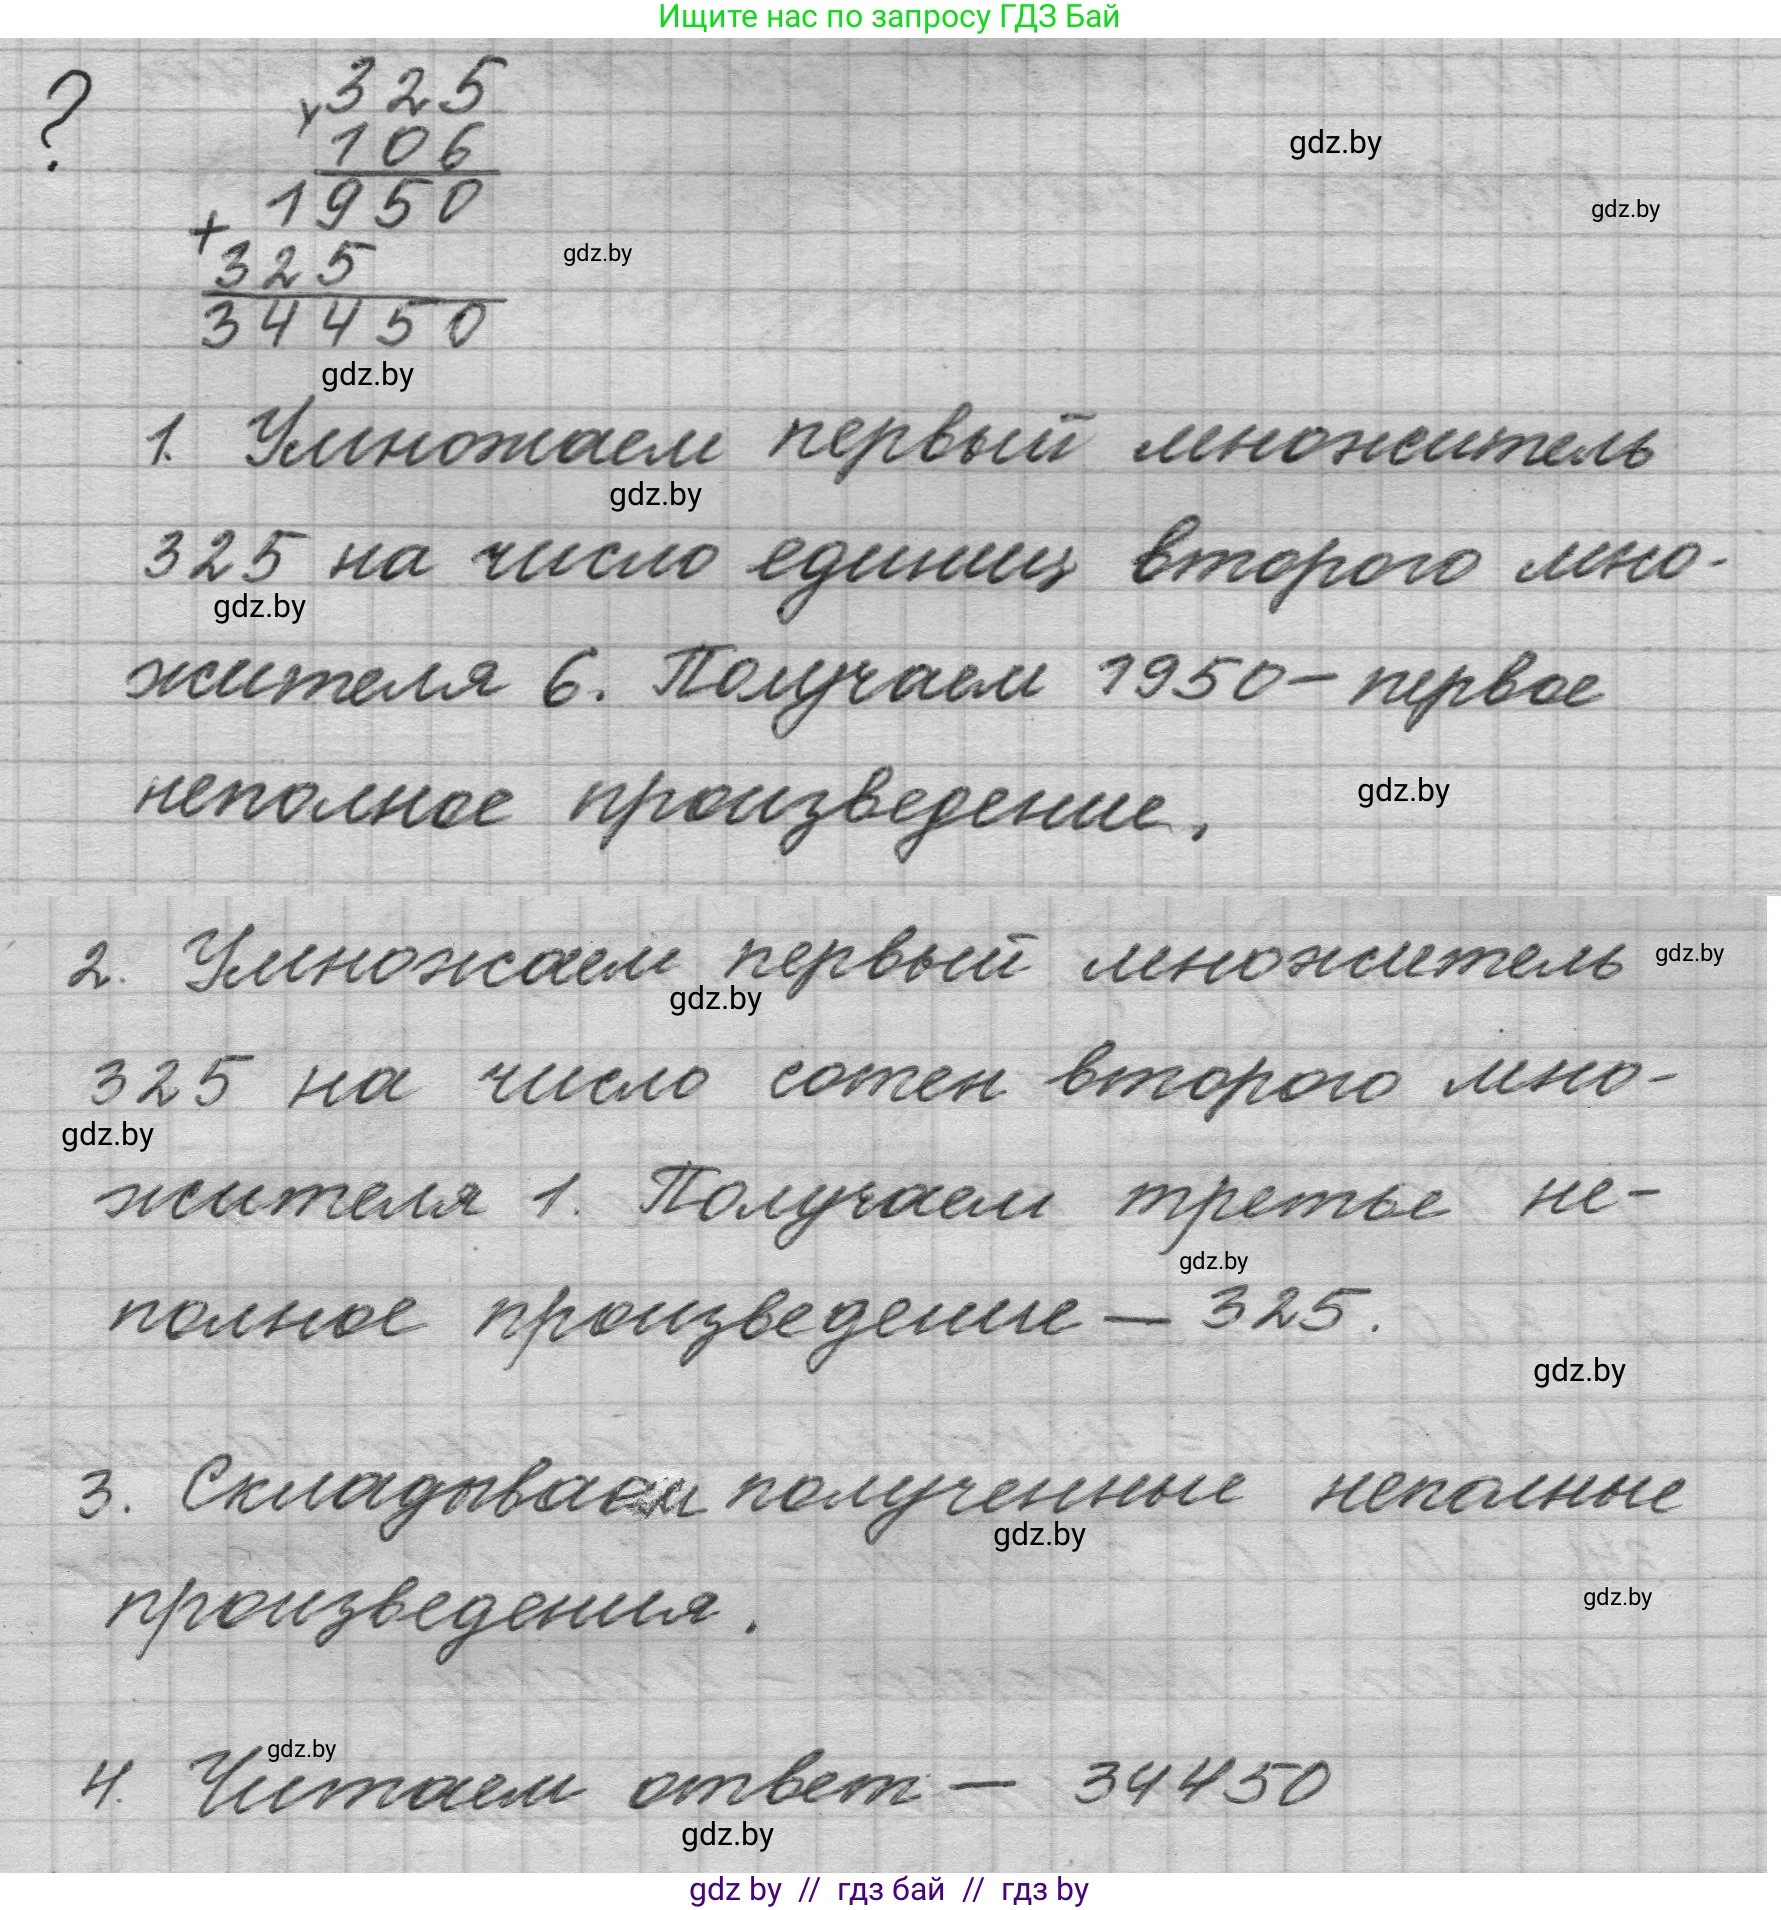 Ищите нас по запросу ГДЗ Бай
? × 325
106
gdz.by
1950
gdz.by
+
325
gdz.by
34450
gdz.by
1. Умножаем первый множитель
gdz.by
325 на число единиц второго мно-
gdz.by
жителя 6. Получаем 1950 – первое
неполное произведение.
gdz.by
2. Умножаем первый множитель
gdz.by
gdz.by
325 на число сотен второго мно-
gdz.by
жителя 1. Получаем третье не-
gdz.by
полное произведение — 325.
gdz.by
3. Складываем полученные неполные
gdz.by
произведения.
gdz.by
gdz.by
4. Читаем ответ — 34450
gdz.by
gdz by // гдз бай // гдз by